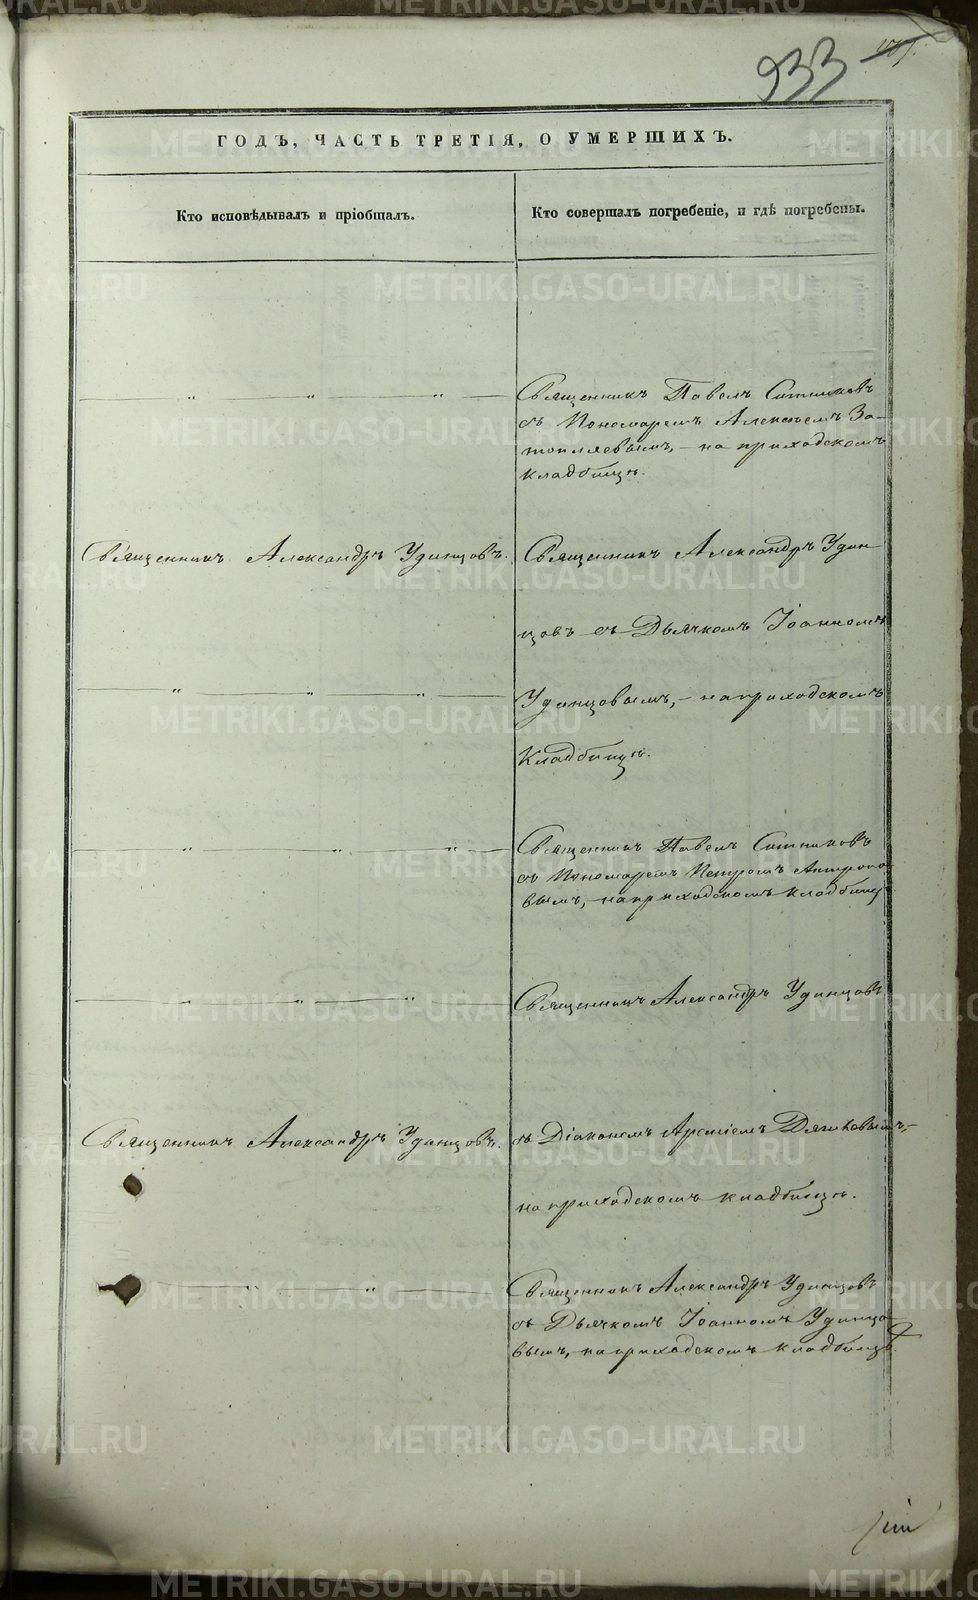 933
ГОДЪ, ЧАСТЬ ТРЕТІЯ, О УМЕРШИХЪ.
Кто исповѣдывалъ и пріобщалъ.
Кто совершалъ погребеніе, и гдѣ погребены.
Священникъ Павелъ Ситниковъ
съ Пономаремъ Алексѣемъ За-
топляевымъ, – на приходскомъ
кладбищѣ.
Священникъ Александръ Удинцовъ.
Священникъ Александръ Удин-
цовъ съ Дьячкомъ Іоанномъ
Удинцовымъ, – на приходскомъ
Кладбищѣ.
Священникъ Павелъ Ситниковъ
съ Пономаремъ Петромъ
вымъ, – на приходскомъ кладбищѣ
Священникъ Александръ Удинцовъ
Священникъ Александръ Удинцовъ.
съ Діакономъ Арсеніемъ –
на приходскомъ кладбищѣ.
Священникъ Александръ Удинцовъ
съ Дьячкомъ Іоанномъ Удинцо-
вымъ, на приходскомъ кладбищѣ.
METRIKI.GASO-URAL.RU